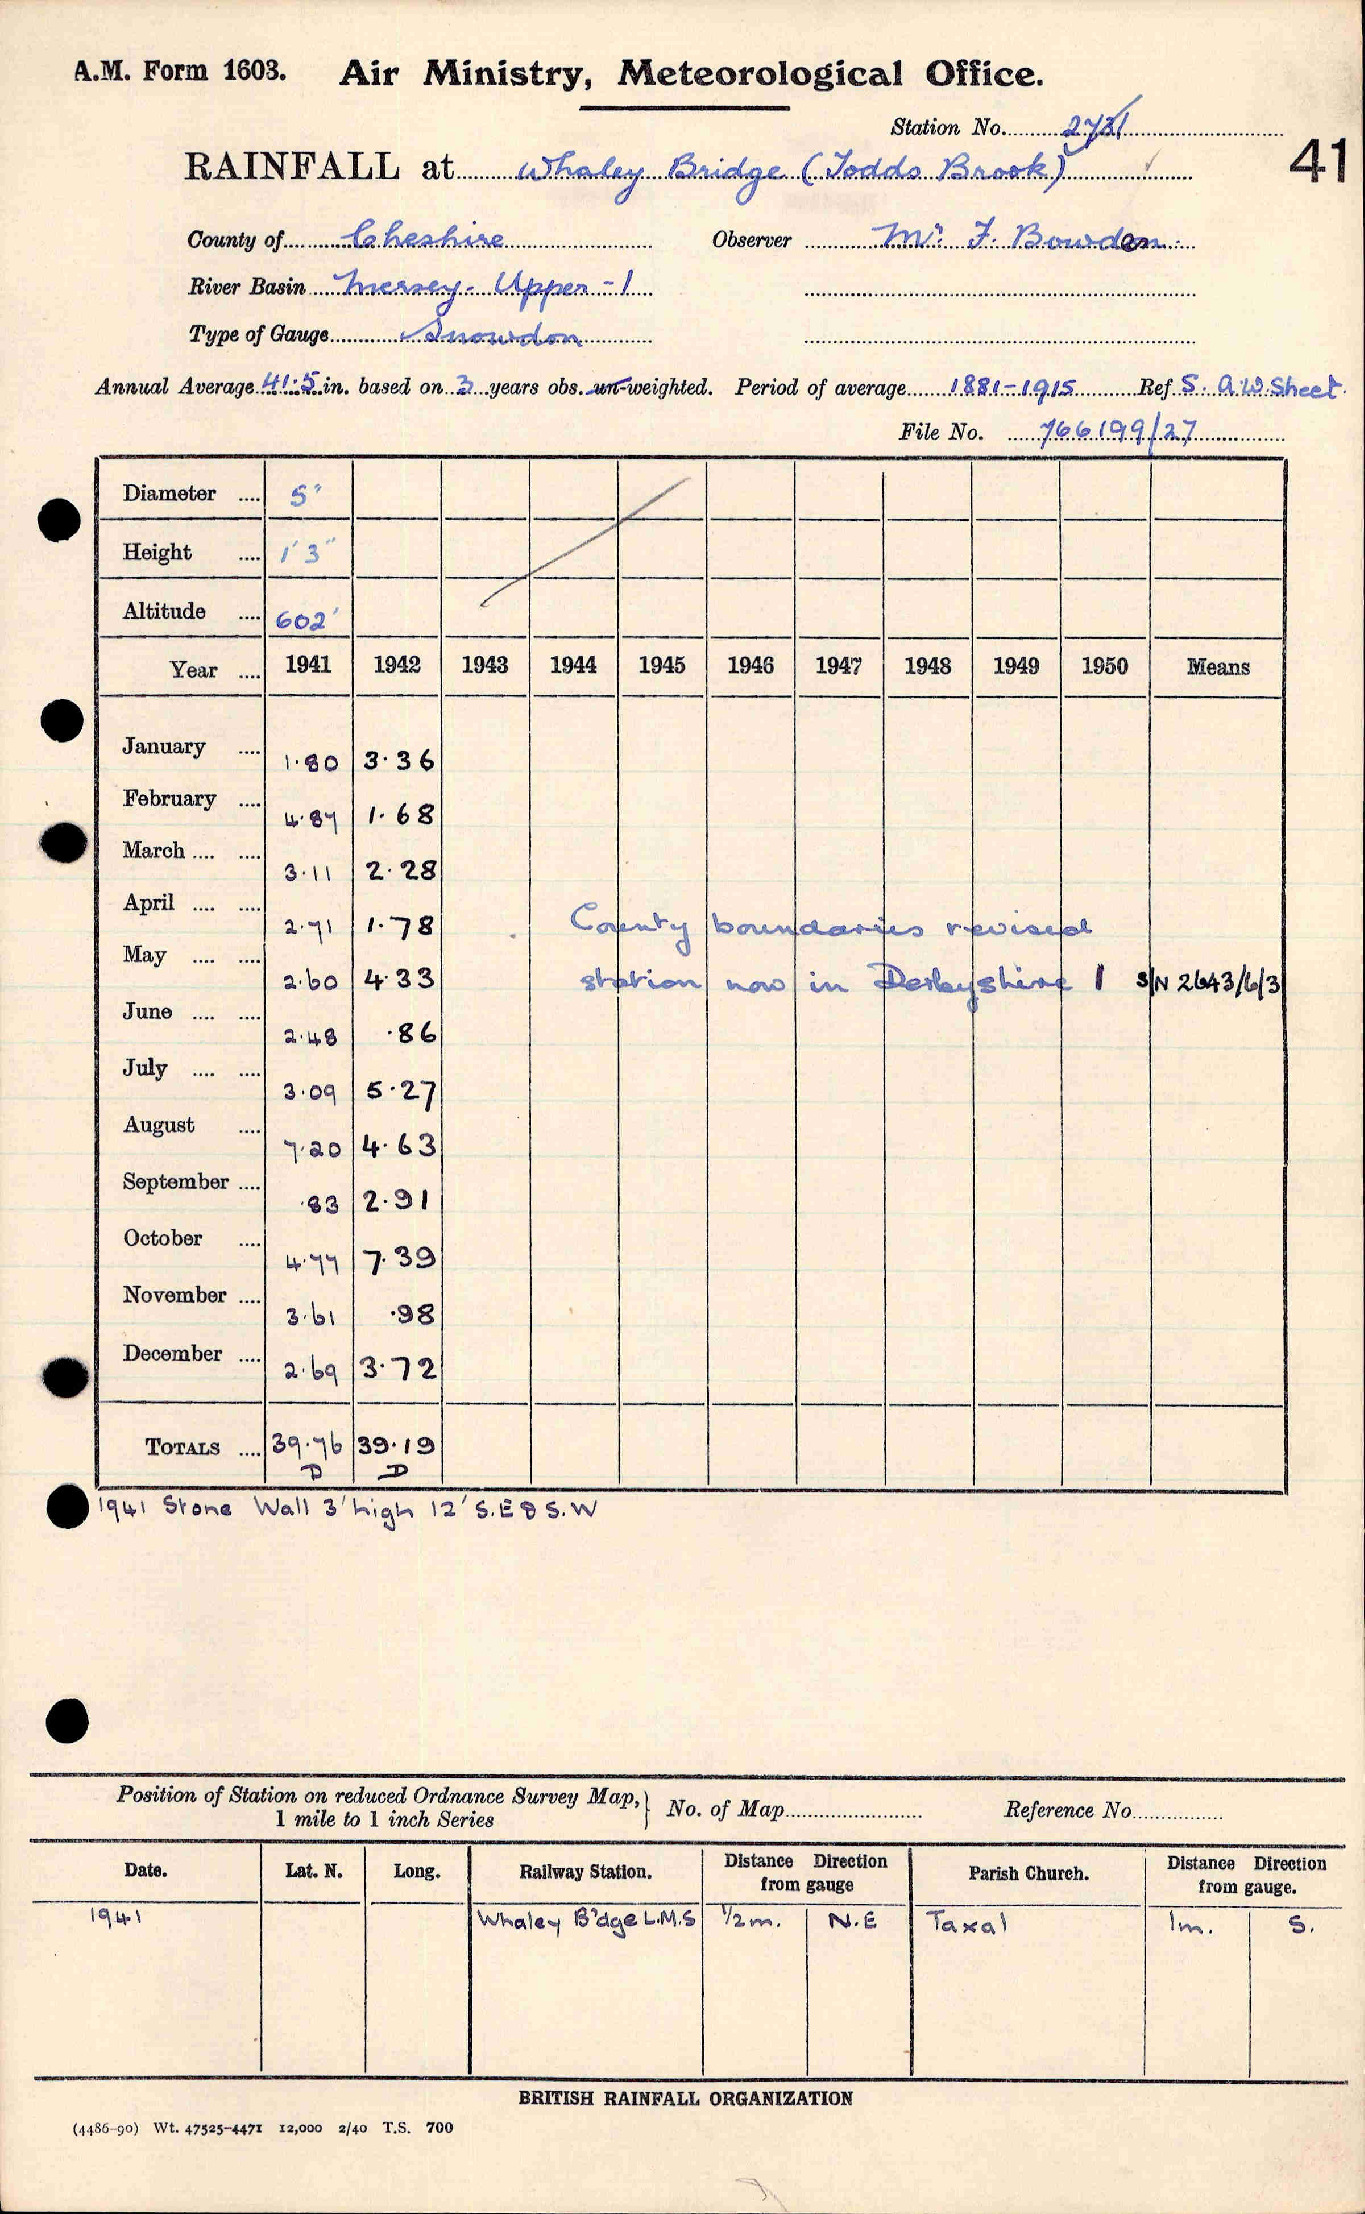 A.M. Form 1603. Air Ministry, Meteorological Office.
Station No. 2731
41
RAINFALL at Whaley Bridge (Todds Brook)
County of Cheshire Observer Mr. F. Bowden
River Basin Mersey - Upper - 1
Type of Gauge Snowdon
Annual Average 41.5 in. based on 3 years obs. un-weighted. Period of average 1881-1915 Ref S. A.W. Sheet.
File No. 766199/27
Diameter .... 5"
Height .... 1' 3"
Altitude .... 602'
Year .... 1941 1942 1943 1944 1945 1946 1947 1948 1949 1950 Means
January .... 1.80 3.36
February .... 4.87 1.68
March .... .... 3.11 2.28
April .... .... 2.71 1.78
County boundaries revised
May .... .... 2.60 4.33
station now in Derbyshire 1 S/N 2643/6/3
June .... .... 2.48 .86
July .... .... 3.09 5.27
August .... 7.20 4.63
September .... .83 2.91
October .... 4.77 7.39
November .... 3.61 .98
December .... 2.69 3.72
TOTALS .... 39.76 39.19
D D
1941 Stone Wall 3' high 12' S.E & S.W
Position of Station on reduced Ordnance Survey Map, } No. of Map Reference No
1 mile to 1 inch Series
Date. Lat. N. Long. Railway Station. Distance Direction from gauge Parish Church. Distance Direction from gauge.
1941 Whaley B'dge L.M.S 1/2 m. N.E Taxal 1m. S.
BRITISH RAINFALL ORGANIZATION
(4486-90) Wt. 47525-4471 12,000 2/40 T.S. 700